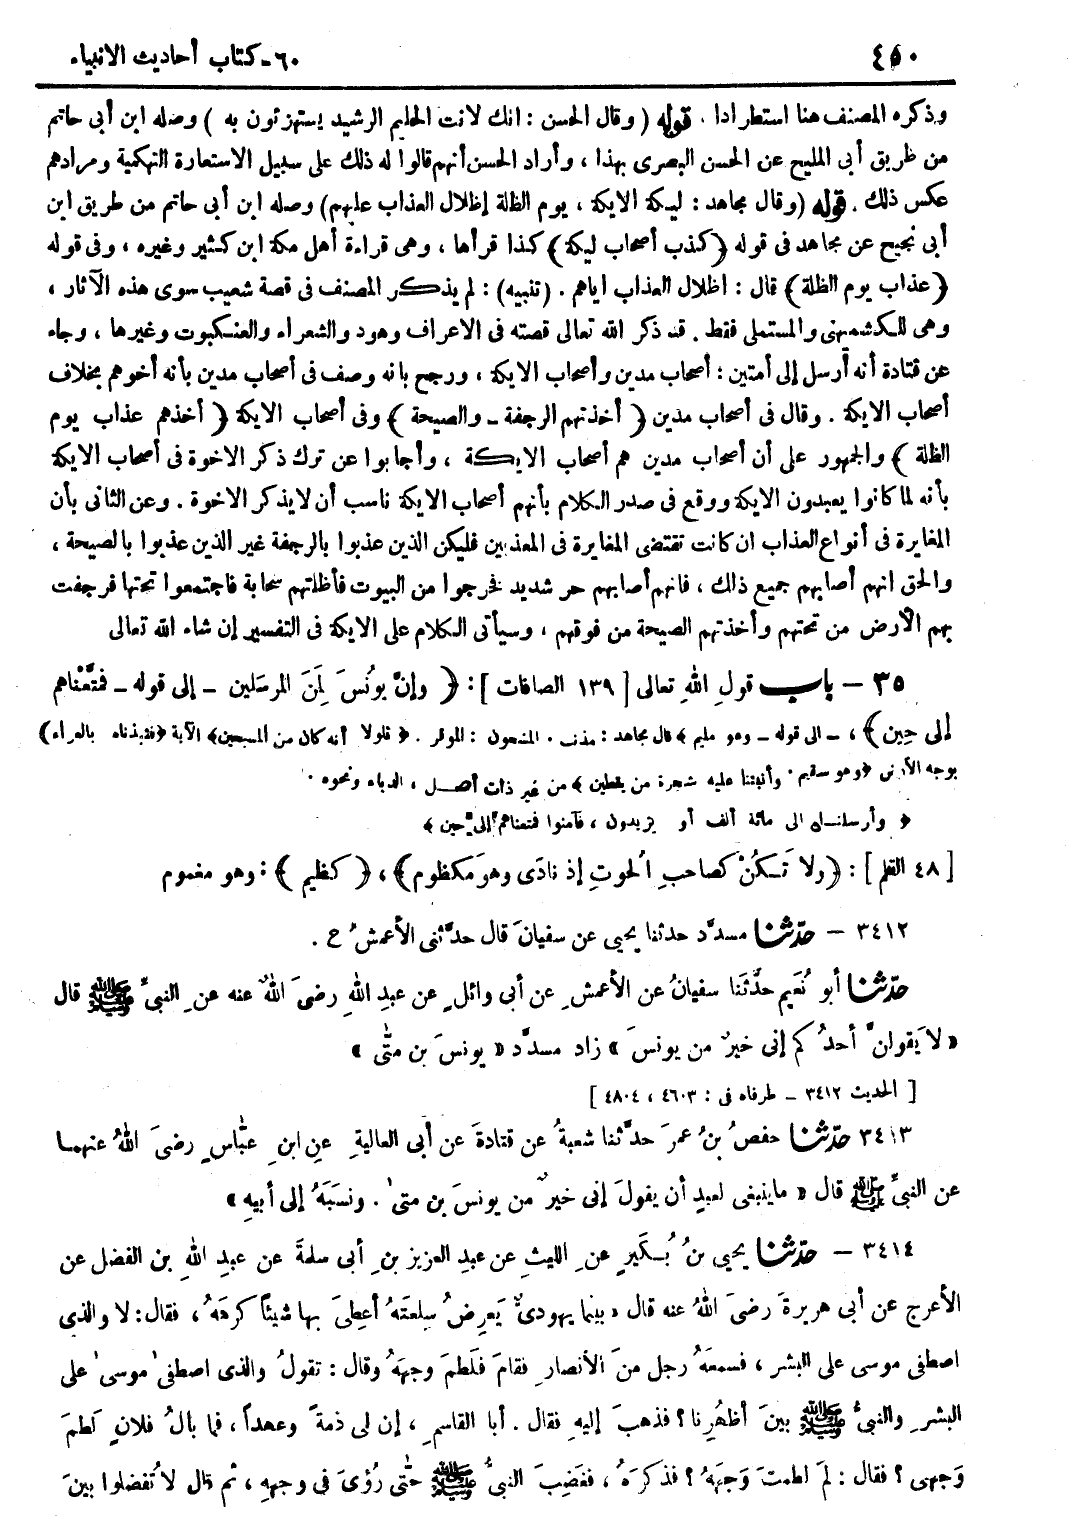 ٤٥٠
٦٠-كتاب أحاديث الانبياء
وذكره المصنف هنا استطرادا . قوله ( وقال الحسن : انك لانت الحليم الرشيد يستهزئون به ) وصله ابن أبى حاتم
من طريق أبى المليح عن الحسن البصرى بهذا ، وأراد الحسن أنهم قالوا له ذلك على سبيل الاستعارة التهكمية ومرادهم
عكس ذلك . قوله ( وقال مجاهد : ليكة الايكة ، يوم الظلة إظلال العذاب عليهم) وصله ابن أبى حاتم من طريق ابن
أبى نجيح عن مجاهد فى قوله ﴿كذب أصحاب ليكة﴾ كذا قرأها ، وهى قراءة أهل مكة ابن كثير وغيره ، وفى قوله
﴿عذاب يوم الظلة﴾ قال : اظلال العذاب اياهم . (تنبيه) : لم يذكر المصنف فى قصة شعيب سوى هذه الآثار ،
وهى للكشميهنى والمستملى فقط . قد ذكر الله تعالى قصته فى الاعراف وهود والشعراء والعنكبوت وغيرها ، وجاء
عن قتادة أنه أرسل إلى أمتين : أصحاب مدين وأصحاب الايكة ، ورجح بانه وصف فى أصحاب مدين بأنه أخوهم بخلاف
أصحاب الايكة . وقال فى أصحاب مدين ﴿ أخذتهم الرجفة - والصيحة ﴾ وفى أصحاب الايكة ﴿ أخذهم عذاب يوم
الظلة ﴾ والجمهور على أن أصحاب مدين هم أصحاب الايكة ، وأجابوا عن ترك ذكر الاخوة فى أصحاب الايكة
بأنه لما كانوا يعبدون الايكة ووقع فى صدر الكلام بأنهم أصحاب الايكة ناسب أن لا يذكر الاخوة . وعن الثانى بأن
المغايرة فى أنواع العذاب ان كانت تقتضى المغايرة فى المعذبين فليكن الذين عذبوا بالرجفة غير الذين عذبوا بالصيحة ،
والحق انهم أصابهم جميع ذلك ، فانهم أصابهم حر شديد فخرجوا من البيوت فأظلتهم سحابة فاجتمعوا تحتها فرجفت
بهم الأرض من تحتهم وأخذتهم الصيحة من فوقهم ، وسيأتى الكلام على الايكة فى التفسير إن شاء الله تعالى
٣٥ - باب قولِ اللهِ تعالى [ ١٣٩ الصافات ] : ﴿ وإنَّ يونُسَ لِمَنَ المرسَلين - إلى قوله - فمتَّعْناهم
إلى حِين ﴾ ، - الى قوله - وهو مليم ﴾ قال مجاهد : مذنب . المشحون : الموقر . ﴿ فلولا أنه كان من المسبحين﴾ الآية ﴿فنبذناه بالعراء﴾
بوجه الأرض ﴿وهو سقيم . وأنبتنا عليه شجرة من يقطين ﴾ من غير ذات أصل ، الدباء ونحوه .
﴿ وأرسلناه الى مائة ألف أو يزيدون ، فآمنوا فمتعناهم إلى حين ﴾
[ ٤٨ القلم ] : ﴿ولا تَكُنْ كصاحبِ الحوتِ إذ نادَى وهوَ مكظوم﴾ ، ﴿ كظيم ﴾ : وهو مغموم
٣٤١٢ - حدّثنا مسدَّد حدثنا يحيى عن سفيانَ قال حدَّثنى الأعمشُ ح .
حدّثنا أبو نُعَيم حدَّثَنا سفيانُ عن الأعمشِ عن أبى وائلٍ عن عبدِ اللهِ رضىَ اللهُ عنه عنِ النبىِّ ﷺ قال
« لا يَقولنَّ أحدُكم إنى خيرٌ من يونسَ » زاد مسدَّد « يونسَ بن متَّى »
[ الحديث ٣٤١٢ - طرفاه فى : ٤٦٠٣ ، ٤٨٠٤ ]
٣٤١٣ حدّثنا حفصُ بنُ عمرَ حدَّثنا شعبةُ عن قتادةَ عن أبى العاليةِ عنِ ابنِ عبّاسٍ رضىَ اللهُ عنهما
عن النبىِّ ﷺ قال « ما ينبغى لعبدٍ أن يقولَ إنى خيرٌ من يونسَ بن متى . ونسَبَهُ إلى أبيهِ »
٣٤١٤ - حدّثنا يحيى بنُ بُكَيرٍ عنِ الليثِ عن عبدِ العزيز بنِ أبى سلمةَ عن عبدِ اللهِ بن الفضل عن
الأعرج عن أبى هريرةَ رضىَ اللهُ عنه قال « بينما يهودىٌّ يَعرِضُ سِلعتَهُ أُعطِىَ بها شيئاً كرهَهُ ، فقال : لا والذى
اصطفى موسى على البشر ، فسمعَهُ رجل منَ الأنصارِ فقامَ فلَطمَ وجهَهُ وقال : تقولُ والذى اصطفى موسى على
البشرِ والنبىُّ ﷺ بينَ أظهُرِنا ؟ فذهبَ إليهِ فقال . أبا القاسمِ ، إن لى ذمةً وعهداً ، فما بالُ فلانٍ لَطمَ
وَجهى ؟ فقال : لمَ لطمتَ وَجهَهُ ؟ فذكرَهُ ، فغَضِبَ النبىُّ ﷺ حتّى رُؤىَ فى وجههِ ، ثم قال لا تُفضلوا بينَ